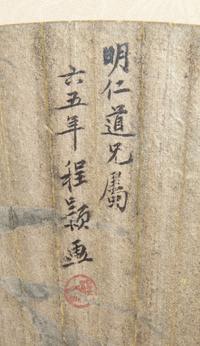 明仁道兄屬
六五年程穎画